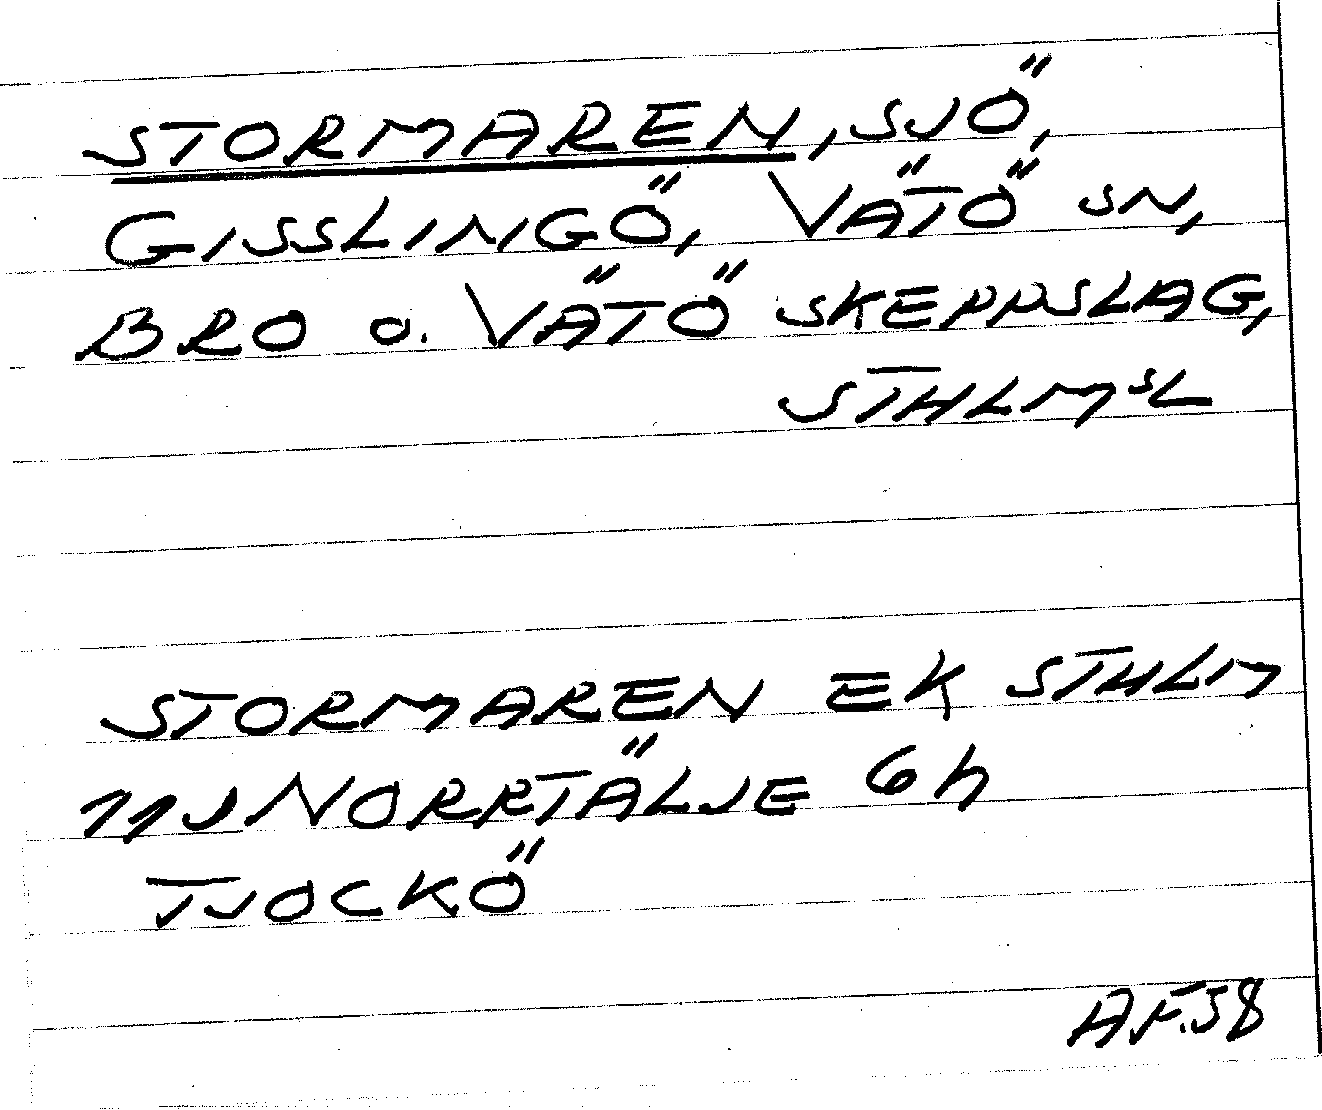 STORMAREN, SJÖ,
GISSLINGÖ, VÄTÖ SN,
BRO O. VÄTÖ SKEPPSLAG,
STHLMSL
STORMAREN EK STHLM
11J NORRTÄLJE 6h
TJOCKÖ
AF.58